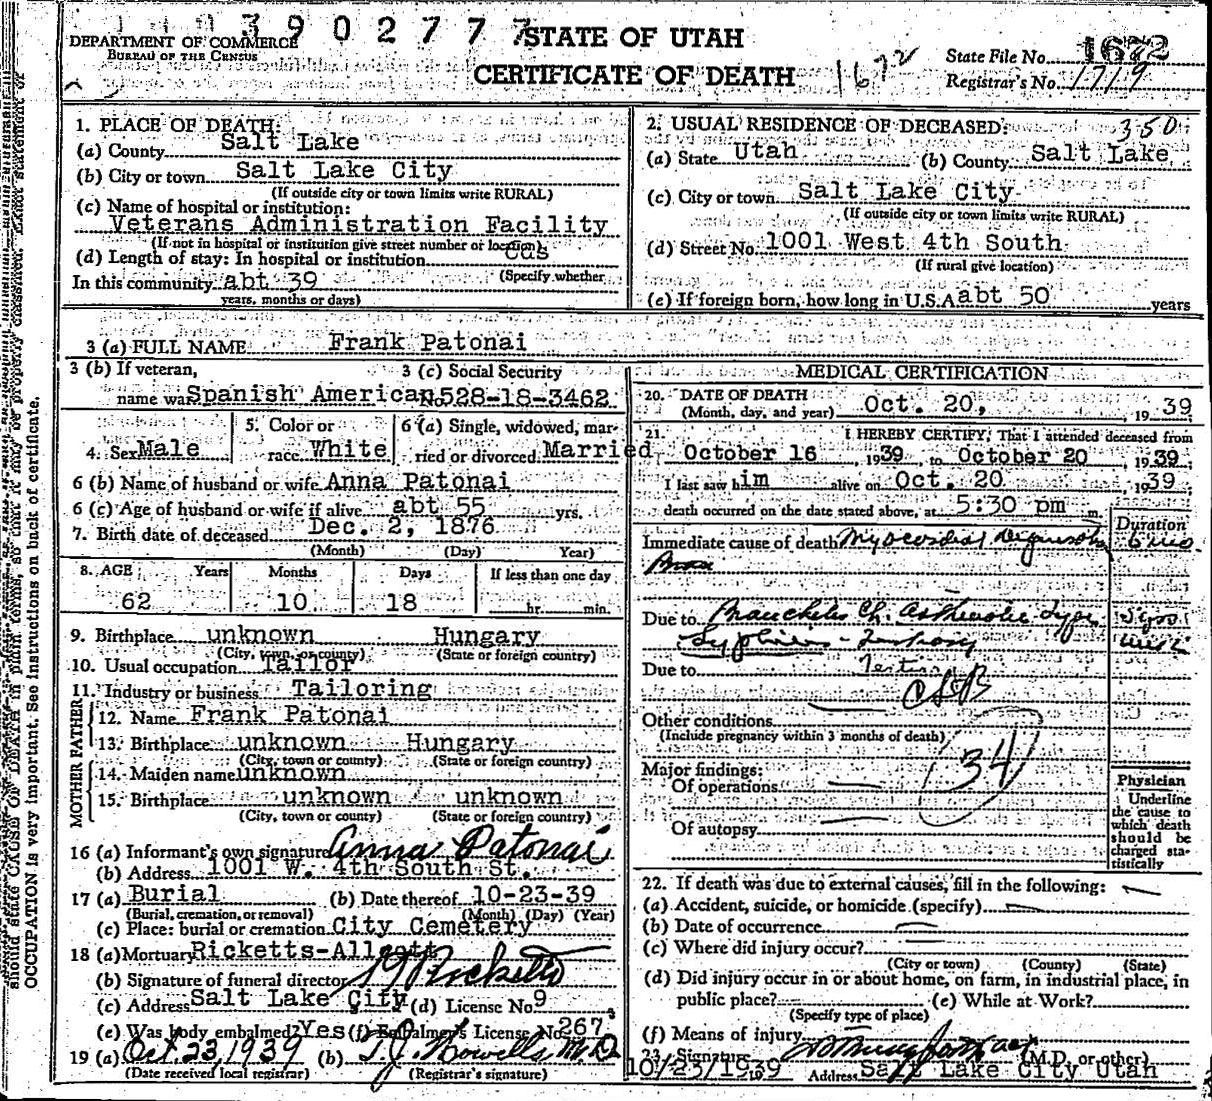 0 3 9 0 2 7 7 7
DEPARTMENT OF COMMERCE
BUREAU OF THE CENSUS
STATE OF UTAH
CERTIFICATE OF DEATH
1672
State File No. 1672
Registrar's No. 1719
1. PLACE OF DEATH:
(a) County Salt Lake
(b) City or town Salt Lake City
(If outside city or town limits write RURAL)
(c) Name of hospital or institution:
Veterans Administration Facility
(If not in hospital or institution give street number or location)
(d) Length of stay: In hospital or institution
(Specify whether
In this community abt 39
years, months or days)
2. USUAL RESIDENCE OF DECEASED: 350
(a) State Utah (b) County Salt Lake
(c) City or town Salt Lake City
(If outside city or town limits write RURAL)
(d) Street No. 1001 West 4th South
(If rural give location)
(e) If foreign born, how long in U.S.A. abt 50 years
3 (a) FULL NAME Frank Patonai
3 (b) If veteran,
name war Spanish American
3 (c) Social Security
No. 528-18-3462
4. Sex Male
5. Color or
race White
6 (a) Single, widowed, mar-
ried or divorced Married
6 (b) Name of husband or wife Anna Patonai
6 (c) Age of husband or wife if alive abt 55 yrs.
7. Birth date of deceased Dec. 2, 1876
(Month) (Day) Year)
8. AGE Years Months Days If less than one day
62 10 18 hr. min.
9. Birthplace unknown Hungary
(City, town, or county) (State or foreign country)
10. Usual occupation Tailor
11. Industry or business Tailoring
FATHER
12. Name Frank Patonai
13. Birthplace unknown Hungary
(City, town or county) (State or foreign country)
MOTHER
14. Maiden name unknown
15. Birthplace unknown unknown
(City, town or county) (State or foreign country)
16 (a) Informant's own signature Anna Patonai
(b) Address 1001 W. 4th South St.
17 (a) Burial (b) Date thereof 10-23-39
(Burial, cremation, or removal) (Month) (Day) (Year)
(c) Place: burial or cremation City Cemetery
18 (a) Mortuary Ricketts-Allcott
(b) Signature of funeral director Ricketts
(c) Address Salt Lake City (d) License No. 9
(e) Was body embalmed? Yes (f) Embalmer's License No. 267
19 (a) Oct. 23, 1939 (b) T.J. Howells, M.D.
(Date received local registrar) (Registrar's signature)
MEDICAL CERTIFICATION
20. DATE OF DEATH
(Month, day, and year) Oct. 20, 1939
21. I HEREBY CERTIFY, That I attended deceased from
October 16, 1939, to October 20, 1939;
I last saw him alive on Oct. 20 1939;
death occurred on the date stated above, at 5:30 pm m.
Duration
Immediate cause of death Myocardial
Due to Ch. Type
Syphilis
Due to Tertiary
Other conditions
(Include pregnancy within 3 months of death)
34
Major findings:
Of operations
Of autopsy
Physician
Underline
the cause to
which death
should be
charged sta-
tistically
22. If death was due to external causes, fill in the following:
(a) Accident, suicide, or homicide (specify)
(b) Date of occurrence
(c) Where did injury occur?
(City or town) (County) (State)
(d) Did injury occur in or about home, on farm, in industrial place, in
public place? (e) While at Work?
(Specify type of place)
(f) Means of injury
23. Signature (M.D. or other)
10/23/1939 Address Salt Lake City Utah
should state CAUSE OF DEATH in plain terms, so that it may be properly classified. Exact statement of
OCCUPATION is very important. See instructions on back of certificate.